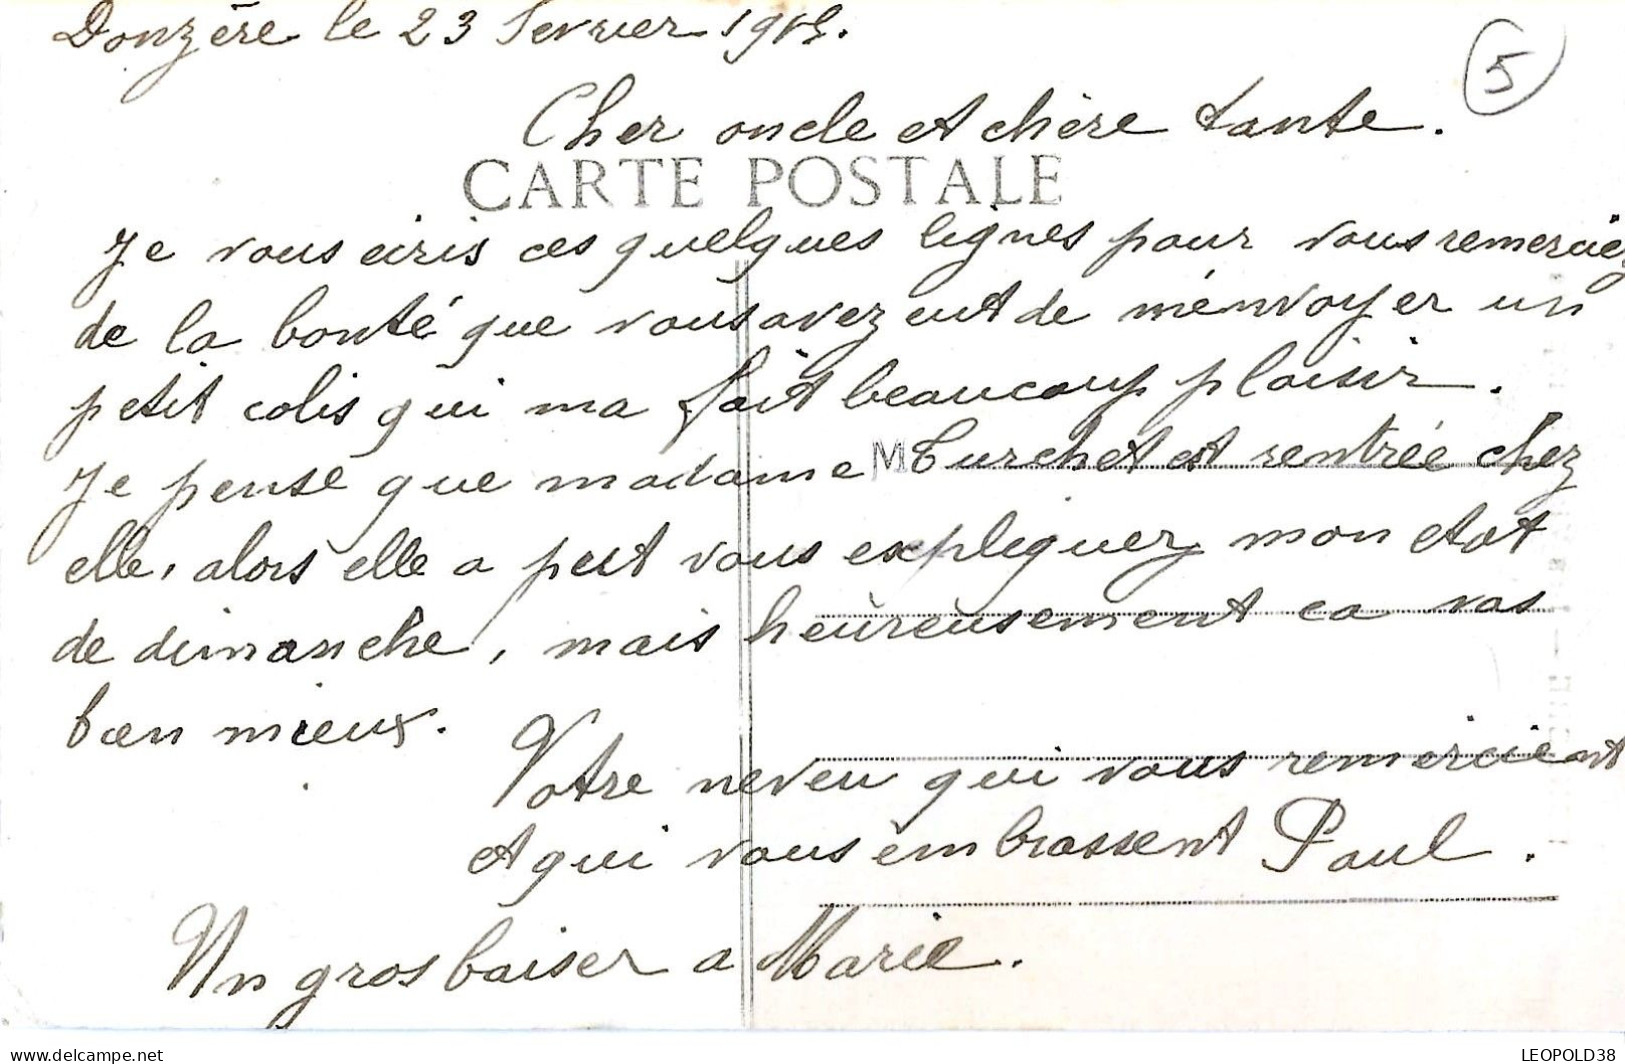 Donzère le 23 Fevrier 19
5
Cher oncle et chère tante.
CARTE POSTALE
Je vous ecris ces quelques lignes pour vous remerciez
de la bonté que vous avez eut de m'envoyer un
petit colis qui ma fait beaucoup plaisir.
Je pense que madame Turchet est rentrée chez
M
elle, alors elle a peut vous expliquez mon etat
de dimanche, mais heureusement ca vas
bien mieux.
Votre neveu qui vous remercient
et qui vous embrassent Paul.
Un gros baiser a Marie.
LEOPOLD38
www.delcampe.net